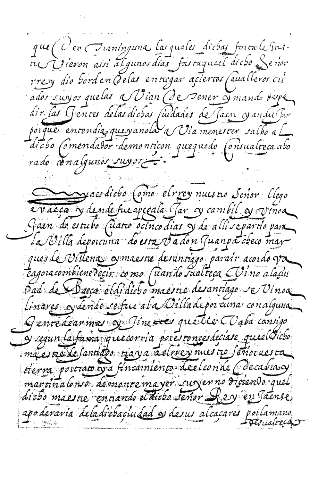 que Dro Daninguna las quales dichas fortale
Vieron assi algunos dias fasta quel dicho Señor
rrey dio horden de las entregar a çiertos Cavalleros cri
ados suyos que las a Vian De tener y mando espe
dir las Gentes de las dichas çiudades de Jaen y andujar
porque entendia que ya no la a Via menester salbo al
dicho Comendador de montiçon que quedo Con su alteça
con algunos suyos
dicho Como el rrey nuestro Señor llego
a vaeça y dende fue a çeala Jar y canbil y Vino a
Jaen do estubo Cuatro o çinco dias y de alli se partio para
la Villa de porcuna do esta Va don Juan pacheco mar
ques de Villena y maestre de santiago para ir
como Cuando su alteça Vino a la çiu
dad de Baeça el dicho maestre de santiago se Vino a
linares y dende se fue a la Villa de porcuna con alguna
Gente de armas y Jinetes que lleVaba consigo
y segun la fama que corria por estonçes deçiase quel dicho
maestre de santiago traya al rey nuestro señor a esta
tierra por trato y a fincamiento de el conde de cabra y
martin alonso de montemayor su yerno diçiendo quel
dicho maestre entrando el dicho señor Rey en Jaen se
apoderaria de la dicha çiudad y de sus alcaçares por la mano
de su alteça